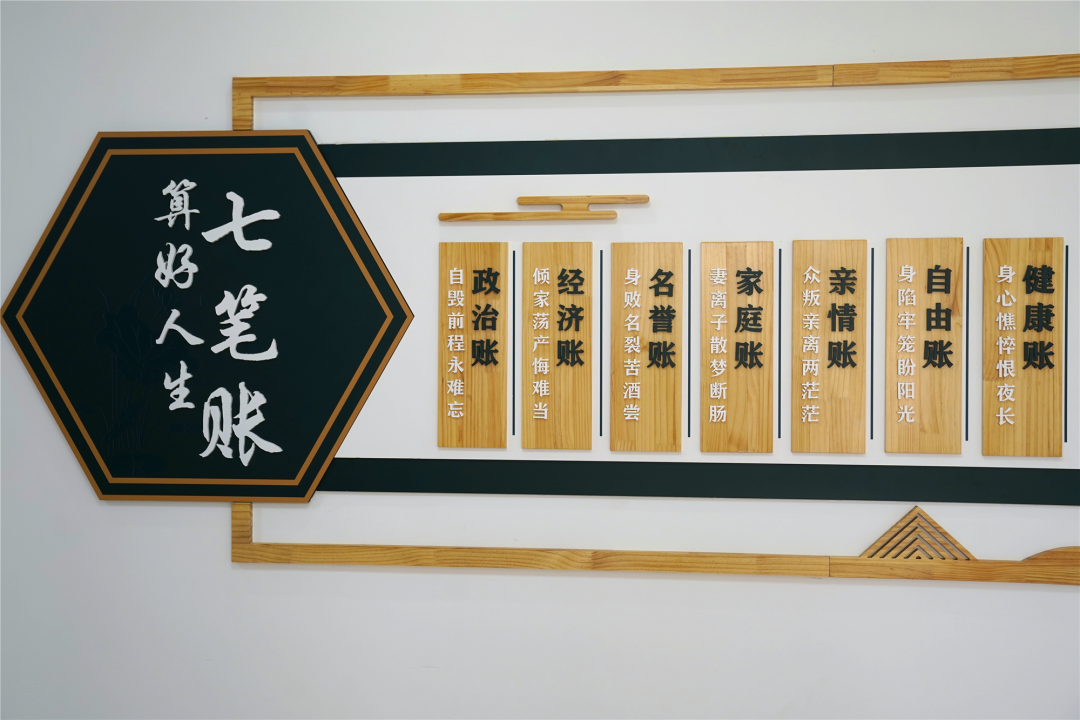 算好人生
七笔账
政治账
自毁前程永难忘
经济账
倾家荡产悔难当
名誉账
身败名裂苦酒尝
家庭账
妻离子散梦断肠
亲情账
众叛亲离两茫茫
自由账
身陷牢笼盼阳光
健康账
身心憔悴恨夜长